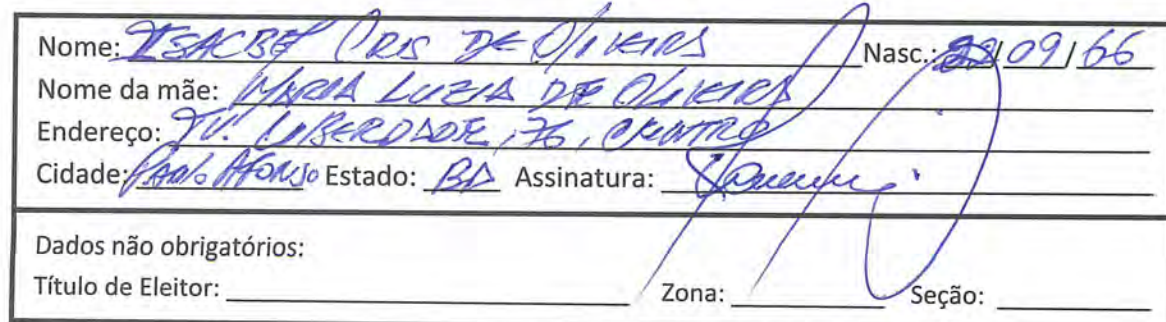 Nome: CRIS DE OLIVEIRA Nasc.: /09/66
Nome da mãe: MARIA LUZIA DE OLIVEIRA
Endereço: TV. LIBERDADE, 76, CENTRO
Cidade: PAULO AFONSO Estado: BA Assinatura:
Dados não obrigatórios:
Título de Eleitor: Zona: Seção: